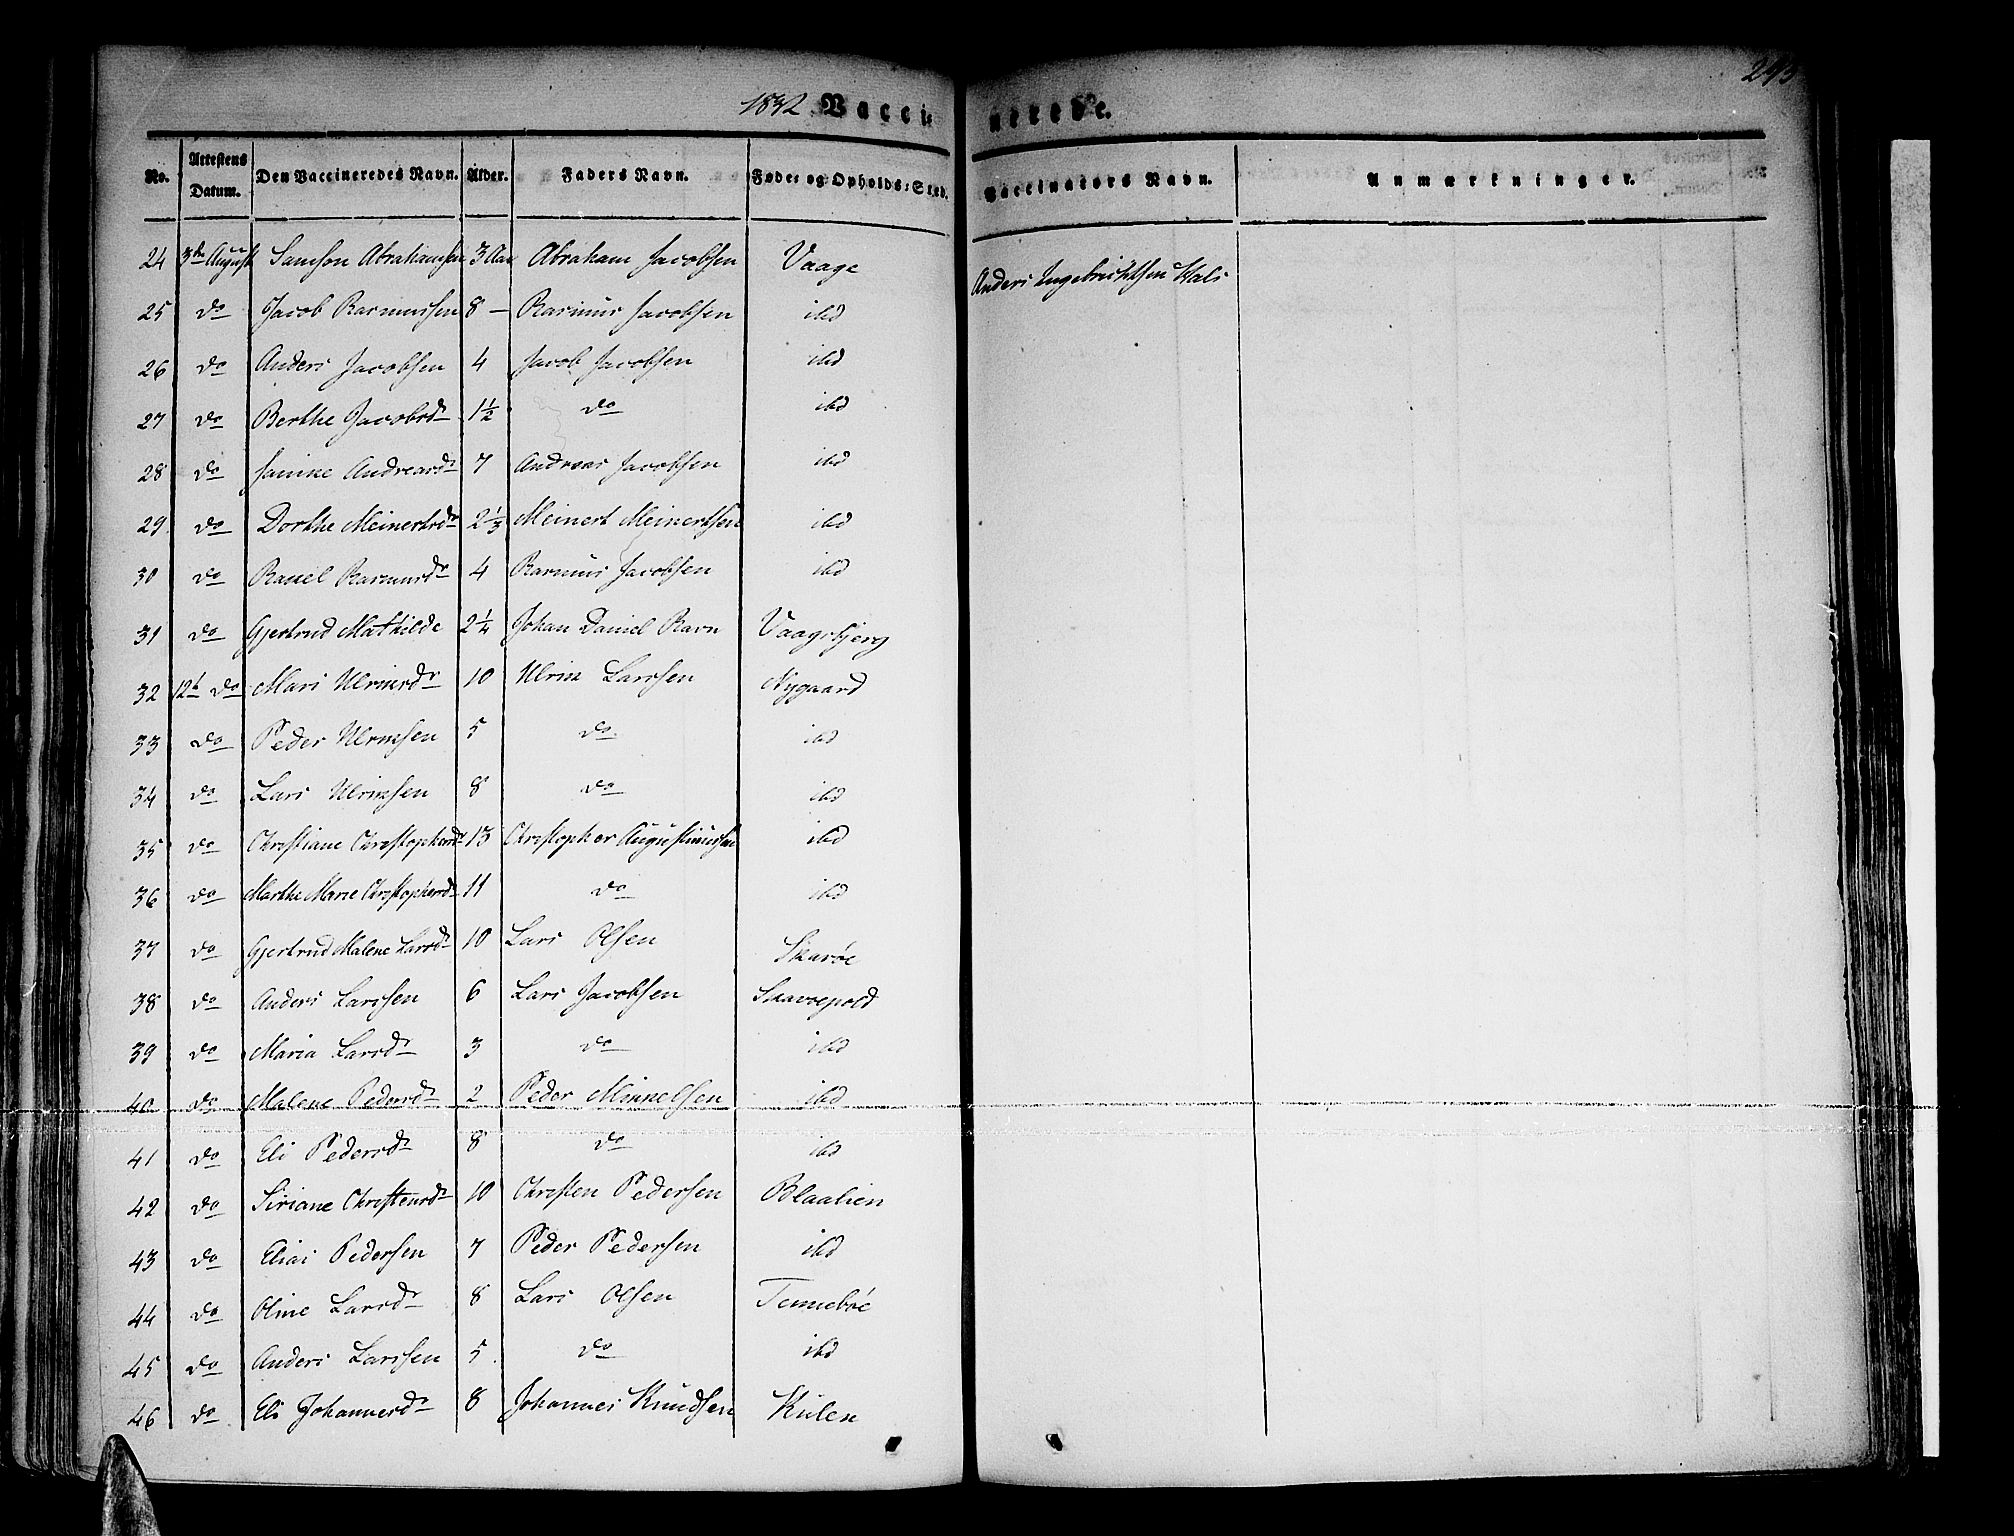 1832 Vaccinerede.
No. Attestens Datum. Den Vaccineredes Navn. Alder. Faders Navn. Fødes og Opholds-Sted. Vaccinators Navn. Anmærkninger.
24 3die August Samson Abrahamsen 3 Aar Abraham Jacobsen Vaage Anders Ingebrichtsen Hals
25 do Jacob Rasmussen 8 — Rasmus Jacobsen ibd
26 do Anders Jacobsen 4 Jacob Jacobsen ibd
27 do Berthe Jacobsdr 1½ do ibd
28 do Andreasdr 7 Andreas Jacobsen ibd
29 do Dorthe Meinertsdr 2⅓ Meinert Meinertsen ibd
30 do Rasmusdr 4 Rasmus Jacobsen ibd
31 do Gjertrud Mathilde 2¼ Johan Daniel Ravn Vaagsbjerg
32 12te do Mari Ulriksdr 10 Ulrik Larssen Nygaard
33 do Peder Ulriksen 5 do ibd
34 do Lars Ulriksen 8 do ibd
35 do Christiane Christophersdr 13 Christopher Augustinussen ibd
36 do Marthe Marie Christophersdr 11 do ibd
37 do Gjertrud Malene Larsdr 10 Lars Olsen Skarøe
38 do Anders Larssen 6 Lars Jacobsen
39 do Maria Larsdr 3 do ibd
40 do Malene Pedersdr 2 Peder Mikkelsen ibd
41 do Eli Pedersdr 8 do ibd
42 do Siriane Christensdr 10 Christen Pedersen Blaalien
43 do Elias Pedersen 7 Peder Pedersen ibd
44 do Oline Larsdr 8 Lars Olsen Tennebøe
45 do Anders Larssen 5 do ibd
46 do Eli Johannesdr 8 Johannes Knudsen Kulen